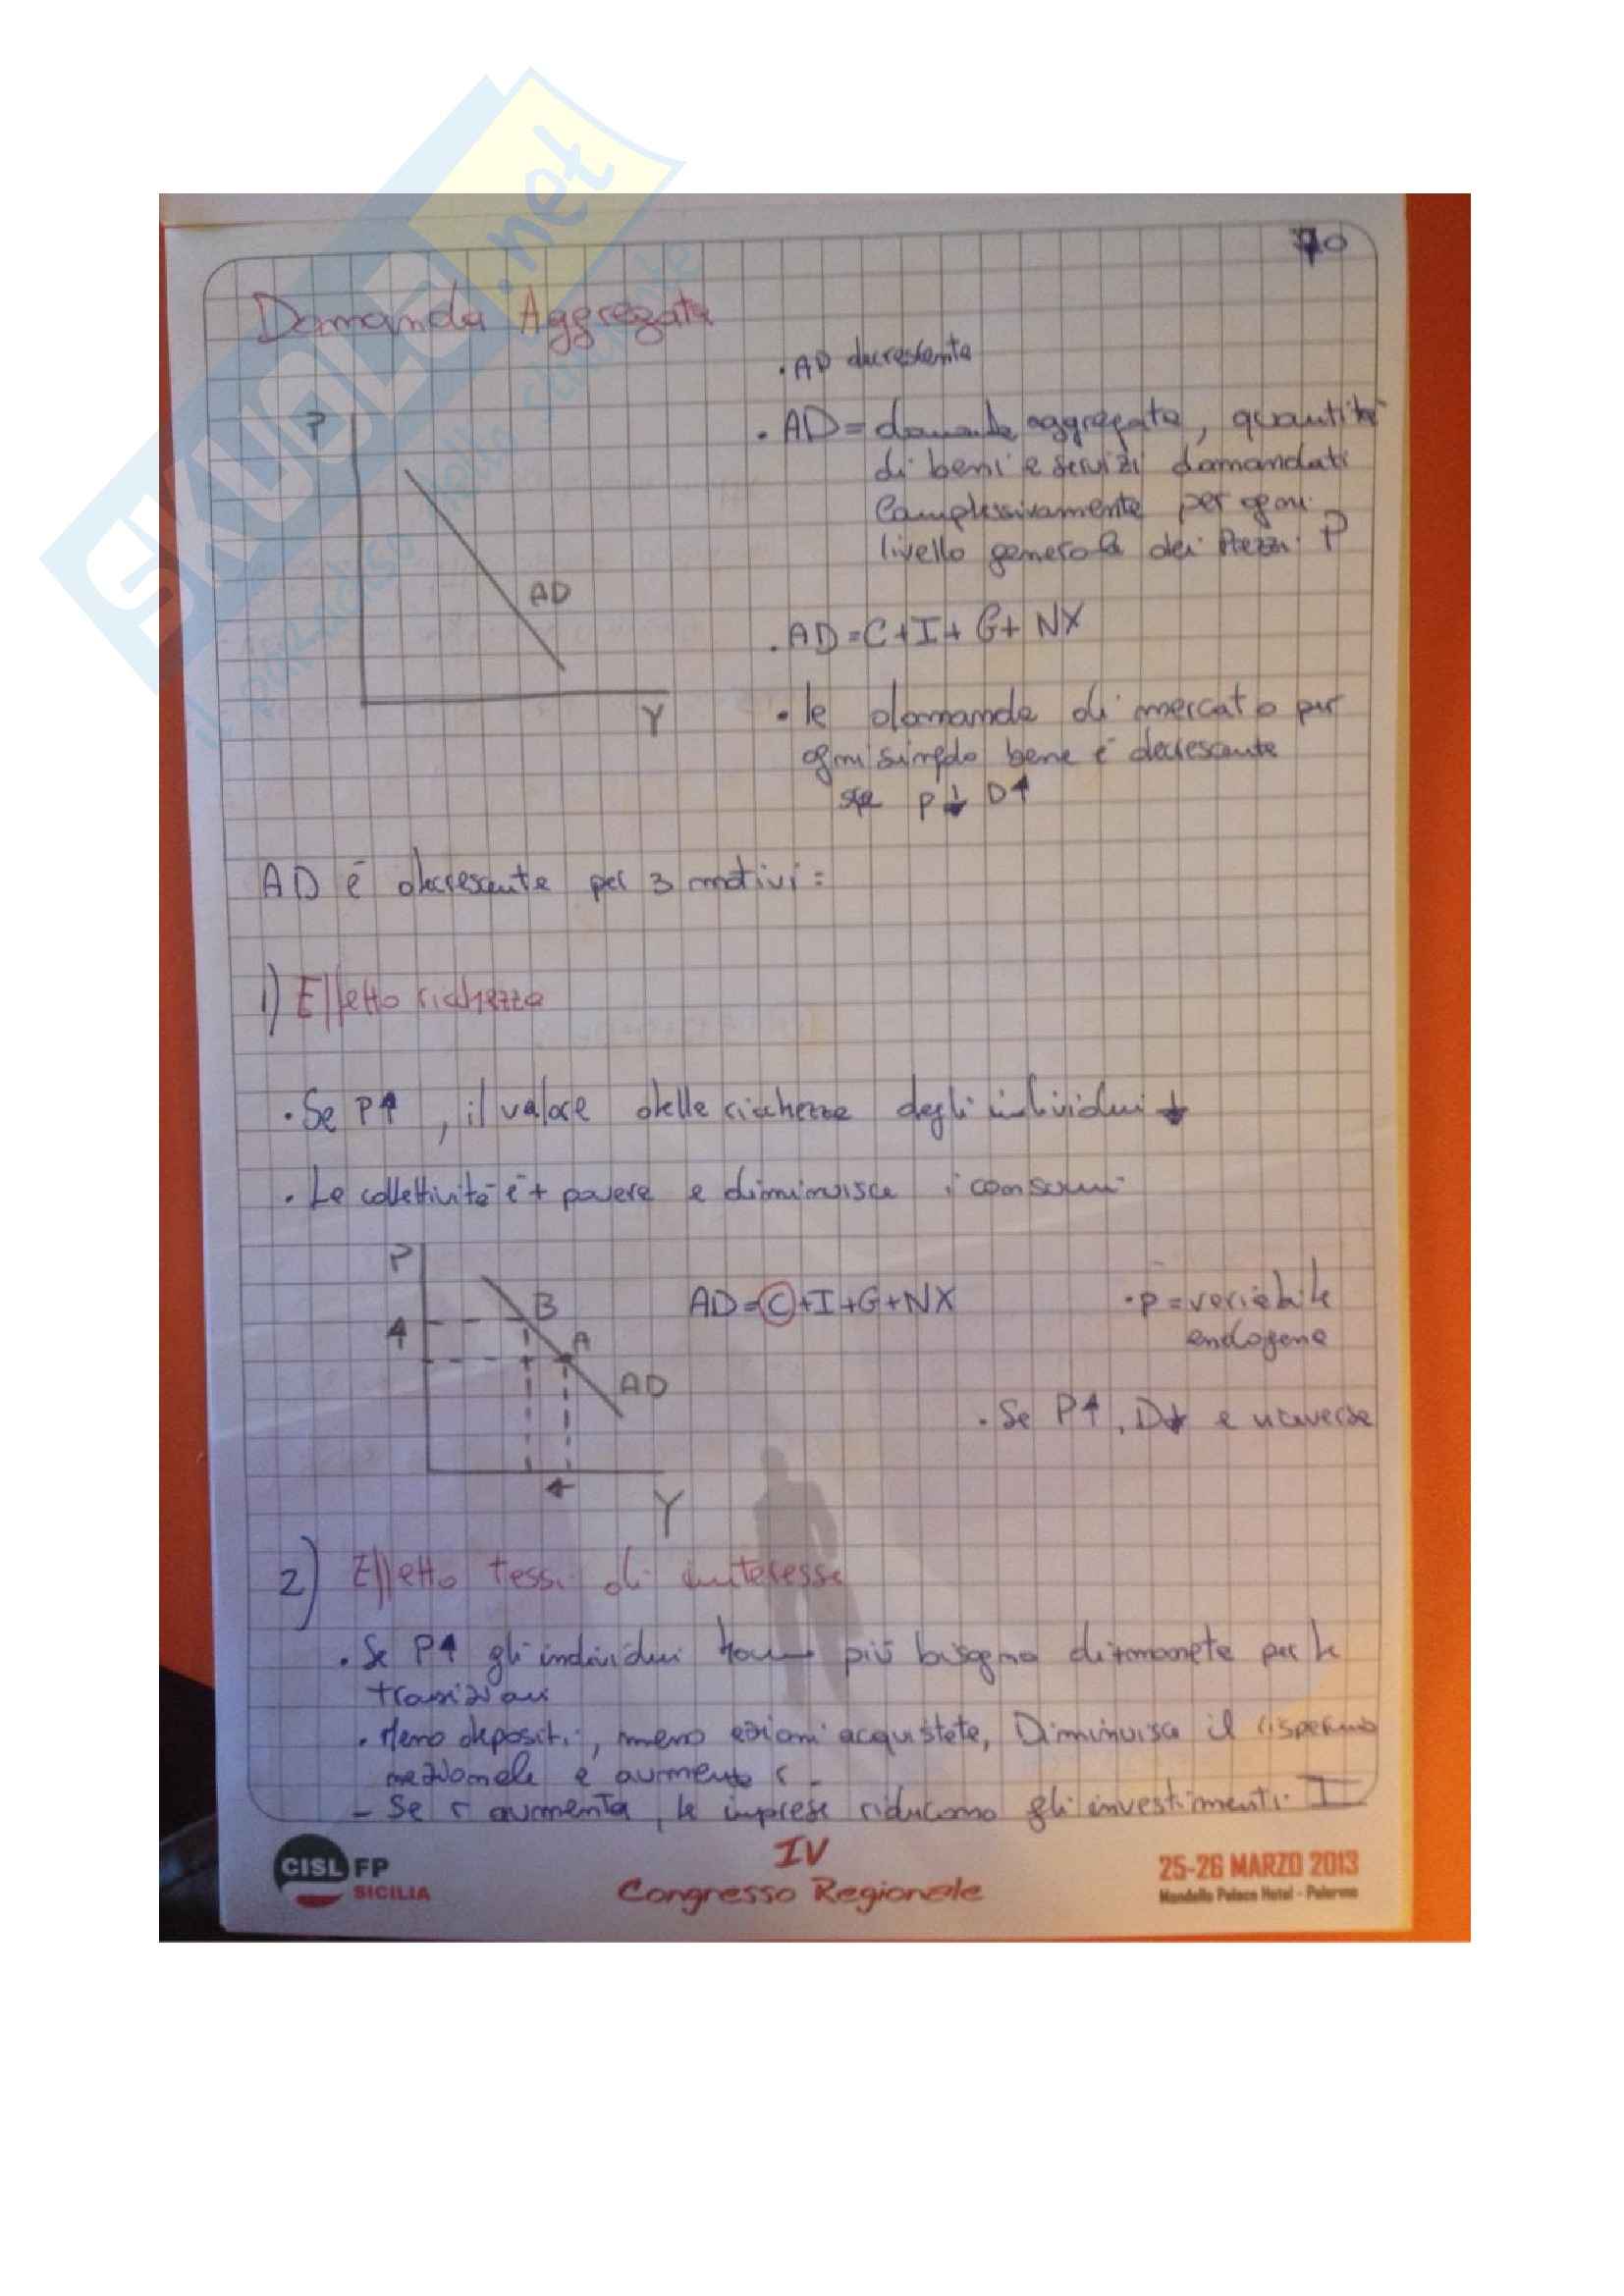 70
Domanda Aggregata
. AD decrescente
P
. AD = domanda aggregata, quantità
di beni e servizi domandati
complessivamente per ogni
livello generale dei Prezzi P
AD
. AD = C+I+G+NX
Y
• la domanda di mercato per
ogni singolo bene è decrescente
se p↓ D↑
AD è decrescente per 3 motivi:
1) Effetto ricchezza
. Se P↑, il valore delle ricchezze degli individui ↓
. La collettività è + povera e diminuisce i consumi
P
B
AD=C+I+G+NX
. p = variabile
endogena
A
AD
. Se P↑, D↓ e viceversa
Y
2) Effetto tassi di interesse
. Se P↑ gli individui hanno più bisogno di moneta per le
transazioni
. Meno depositi, meno azioni acquistate, Diminuisce il risparmio
nazionale e aumenta r.
- Se r aumenta, le imprese riducono gli investimenti I
CISL FP
SICILIA
IV
Congresso Regionale
25-26 MARZO 2013
Mondello Palace Hotel - Palermo
SKUOLA.net
il paradiso dello studente